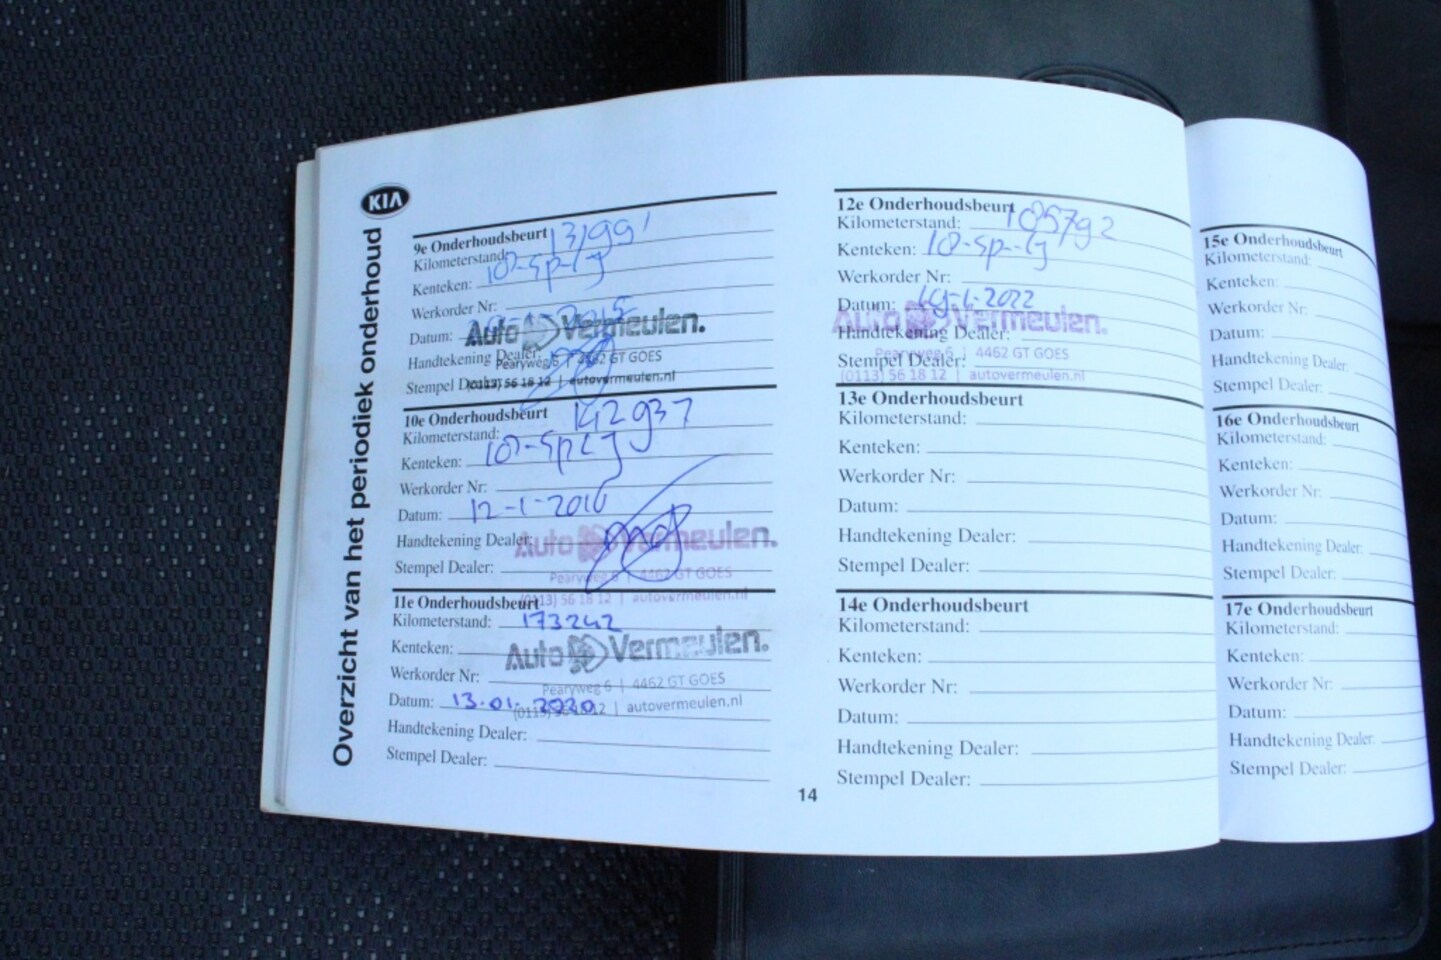 KIA
Overzicht van het periodiek onderhoud
9e Onderhoudsbeurt
Kilometerstand: 131991
Kenteken: 10-sp-lj
Werkorder Nr:
Datum:
Auto Vermeulen.
Handtekening Dealer:
Pearyweg 6 | 4462 GT GOES
Stempel Dealer:
(0113) 56 18 12 | autovermeulen.nl
10e Onderhoudsbeurt
Kilometerstand: 142937
Kenteken: 10-splj
Werkorder Nr:
Datum: 12-1-2016
Handtekening Dealer:
Auto Vermeulen.
Stempel Dealer:
Pearyweg 6 | 4462 GT GOES
(0113) 56 18 12 | autovermeulen.nl
11e Onderhoudsbeurt
Kilometerstand: 173242
Kenteken:
Auto Vermeulen.
Werkorder Nr:
Pearyweg 6 | 4462 GT GOES
Datum: 13.01.2020
(0113) 56 18 12 | autovermeulen.nl
Handtekening Dealer:
Stempel Dealer:
12e Onderhoudsbeurt
Kilometerstand:
Kenteken: 10-sp-lj
Werkorder Nr:
Datum:
Auto Vermeulen.
Handtekening Dealer:
Pearyweg 6 | 4462 GT GOES
Stempel Dealer:
(0113) 56 18 12 | autovermeulen.nl
13e Onderhoudsbeurt
Kilometerstand:
Kenteken:
Werkorder Nr:
Datum:
Handtekening Dealer:
Stempel Dealer:
14e Onderhoudsbeurt
Kilometerstand:
Kenteken:
Werkorder Nr:
Datum:
Handtekening Dealer:
Stempel Dealer:
14
15e Onderhoudsbeurt
Kilometerstand:
Kenteken:
Werkorder Nr:
Datum:
Handtekening Dealer:
Stempel Dealer:
16e Onderhoudsbeurt
Kilometerstand:
Kenteken:
Werkorder Nr:
Datum:
Handtekening Dealer:
Stempel Dealer:
17e Onderhoudsbeurt
Kilometerstand:
Kenteken:
Werkorder Nr:
Datum:
Handtekening Dealer:
Stempel Dealer: